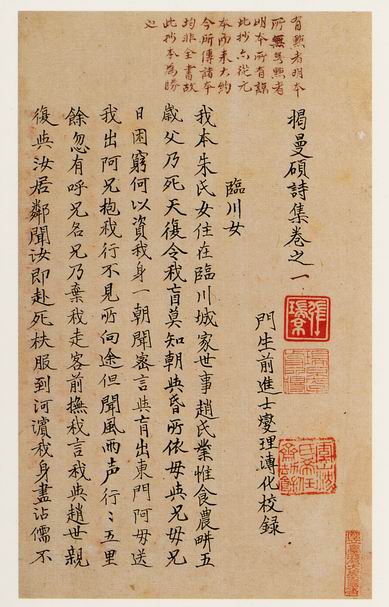 有點者明本
所無無點者
明本所有謀
此抄亦從元
本而來大約
今所傳諸本
均非全書故
此抄本為勝
之
揭曼碩詩集卷之一
門生前進士燮理溥化校錄
臨川女
我本朱氏女住在臨川城家世事趙氏業惟食農畊五
歲父乃死天復令我盲莫知朝與昏所依母與兄母兄
日困窮何以資我身一朝聞密言與盲出東門阿母送
我出阿兄抱我行不見所向途但聞風雨声行〻五里
餘忽有呼兄名兄乃棄我走客前撫我言我與趙世親
復與汝居鄰聞汝即赴死扶服到河濱我身盡沾儒不